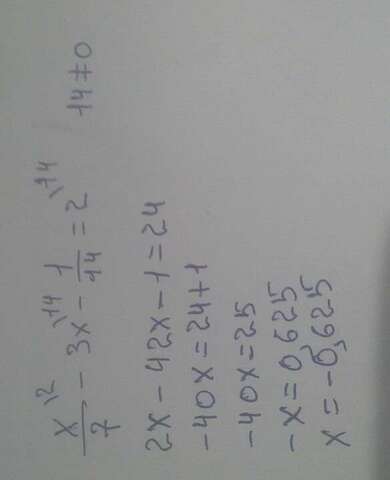 x\2/7 - 3x\14 - 1/14 = 2\14 14≠0
2x - 42x - 1 = 24
-40x = 24+1
-40x = 25
-x = 0,625
x = -0,625